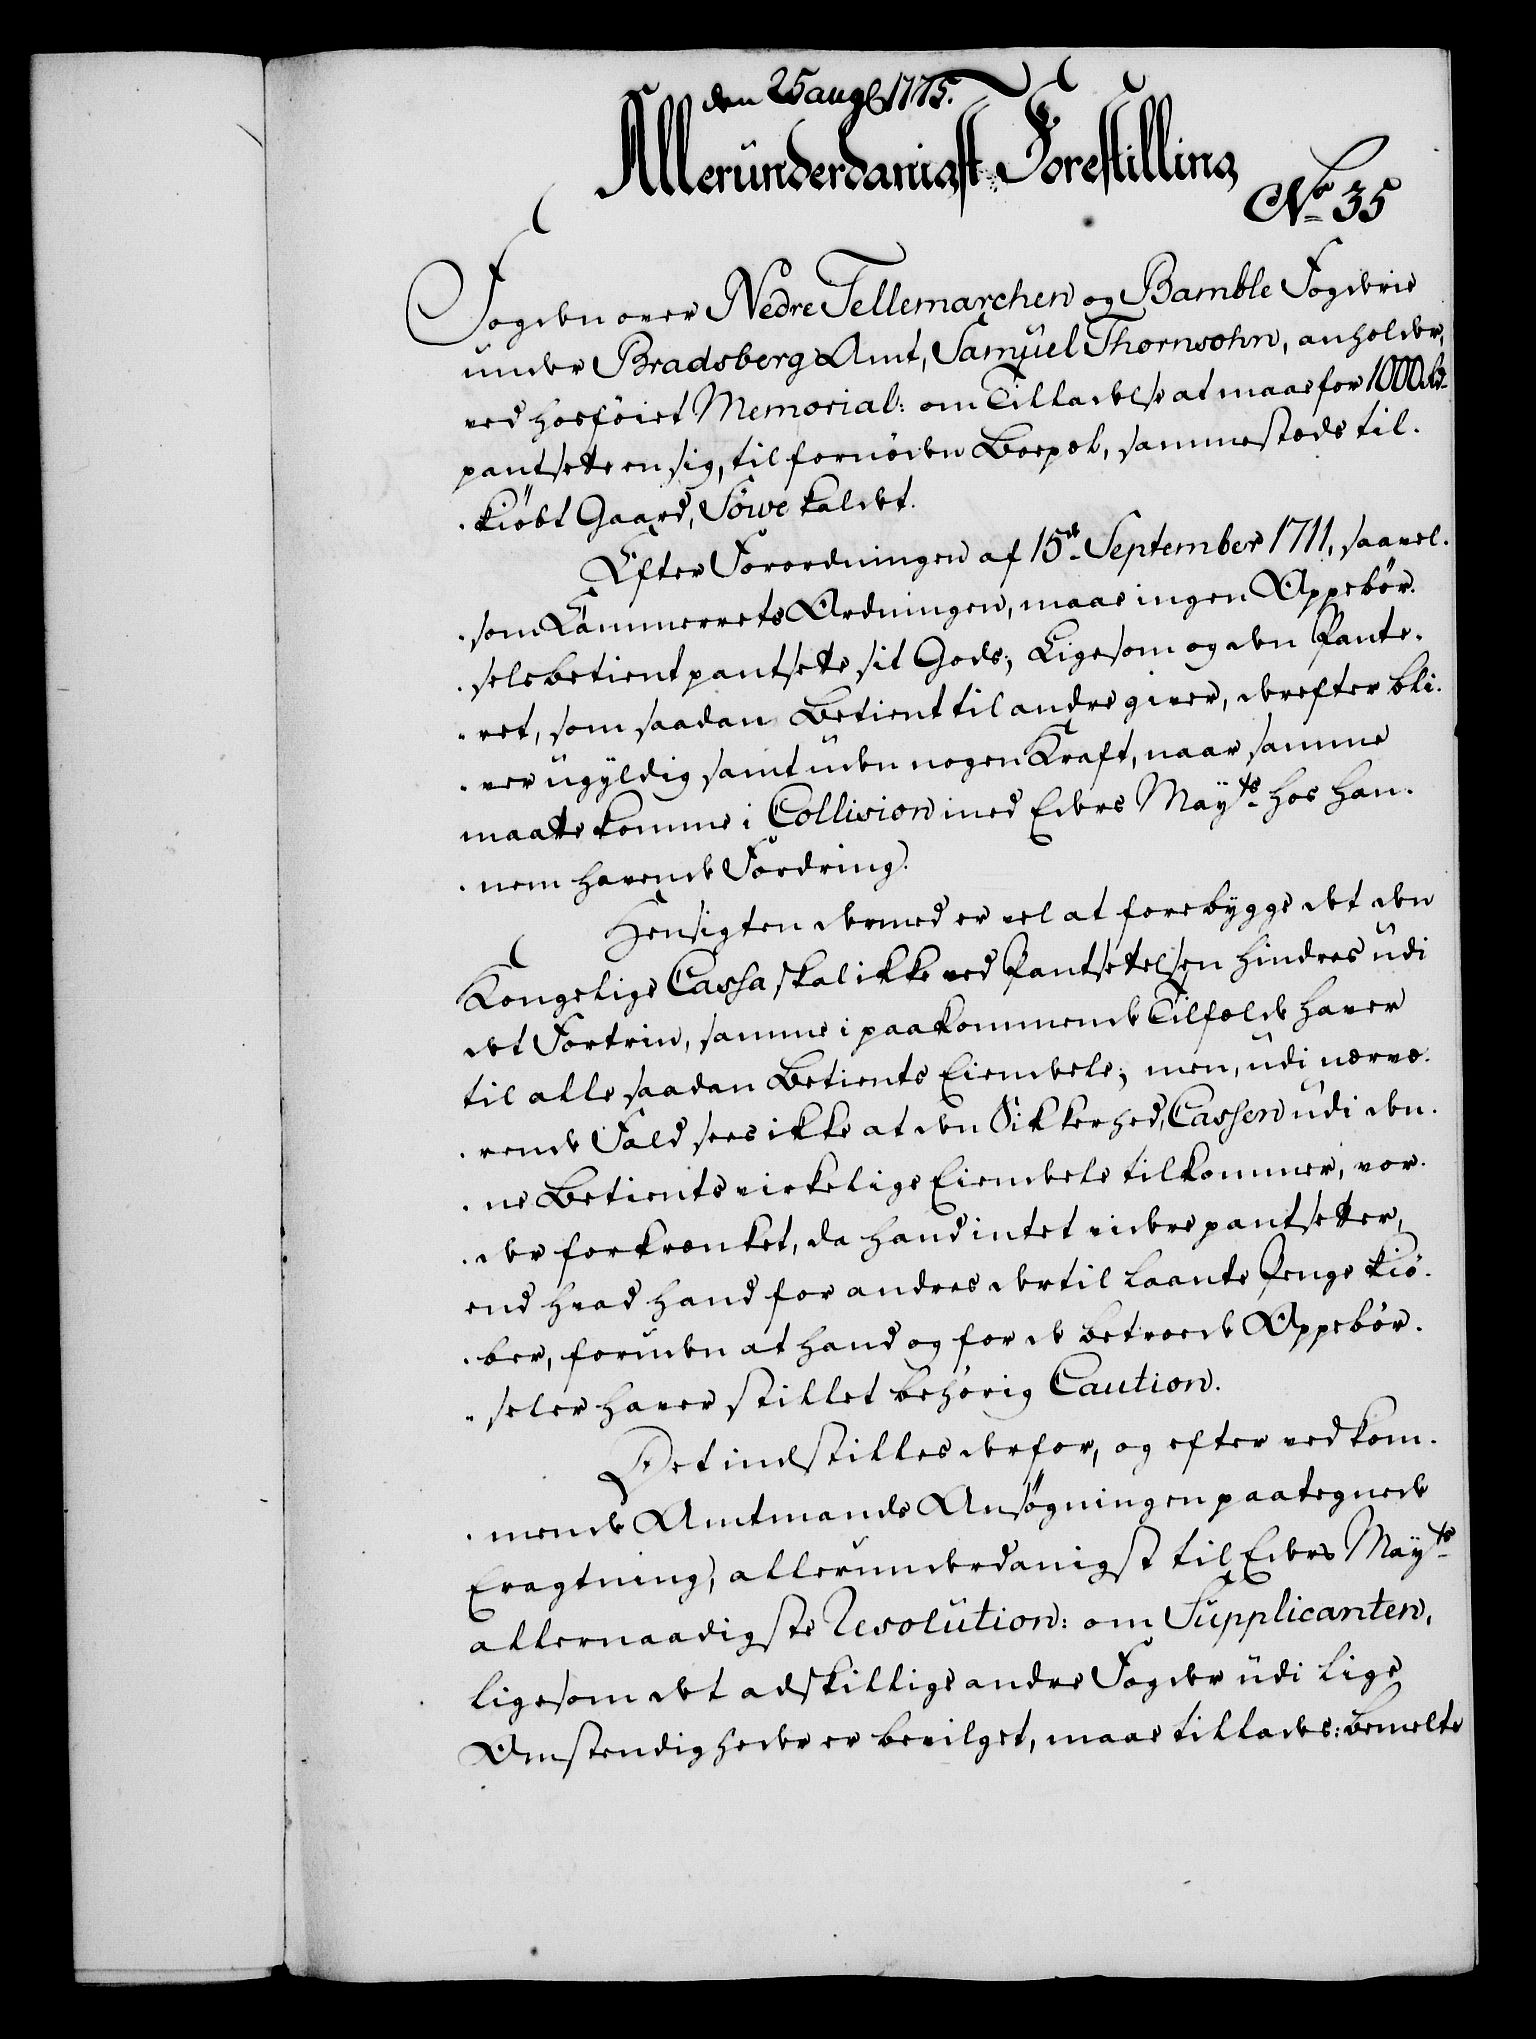 den 25 augl 1775.
Allerunderdanigst Forestilling
No 35
Fogden over Nedre Tellemarchen og Bamble Fogderie
under Bradsberg Amt, Samuel Thornsohn, anholder,
ved hosföiet Memorial: om Tilladelse at maae for 1000 rd
pantsette en sig, til fornöden Boepæl, sammestæds til-
-kiöbt Gaard, Söwe kaldet.
Efter Forordningen af 15de September 1711, saavel-
-som Kammerrets Ordningen, maae ingen Oppebör-
-selsbetient pantsette sit Gods; Ligesom og den Pante-
-ret, som saadan Betient til andre giver, derefter bli-
-ver ugyldig samt uden nogen Kraft, naar samme
maatte komme i Collision med Eders Mayts hos han-
-nem havende Fordring.
Hensigten dermed er vel at forebygge det den
Kongelige Cassa skal ikke ved Pantsettelsen hindres udi
det Fortrin, samme i paakommende Tilfælde haver
til alle saadan Betients Eiendele; men, udi nærvæ-
-rende Fald sees ikke at den Sikkerhed, Cassen udi den-
-ne Betients virkelige Eiendele tilkommer, vor-
-der forkrænket, da hand intet videre pantsetter,
end hvad hand for andres dertil laante Penge kiö-
-ber, foruden at hand og for de betroede Oppebör-
-seler haver stillet behörig Caution.
Det indstilles derfor, og efter vedkom-
-mende Amtmands Ansögningen paategnede
Eragtning, allerunderdanigst til Eders Mayts
allernaadigste Resolution: om Supplicanten,
ligesom det adskillige andre Fogder udi lige
Omstendigheder er bevilget, maae tillades: bemelte